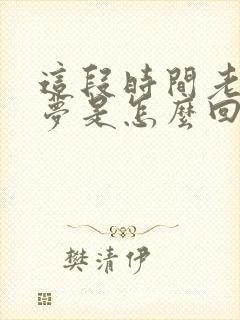 這段時間老
夢是怎麼回
樊清伊